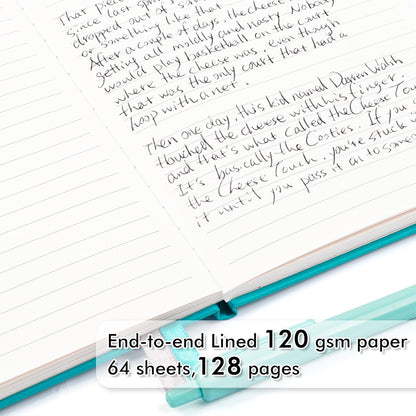 That pie
since last spr
dropped out of s
or something like that
After a couple of days, the cheese
getting all moldly and nasty. Nobody
would play basketball on the court
where the cheese was, even though
that was the only court that had a
loop with a net.
Then one day, this kid named Darren Walsh
touched the cheese with his finger.
and that's what called the Cheese Touc
It's basically the Cooties. If you
the Cheese Touch, you're stuck w
it until you pass it on to someo
End-to-end Lined 120 gsm paper
64 sheets,128 pages